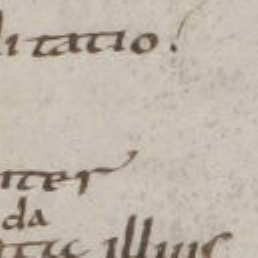 litatio.
nter
da
illius